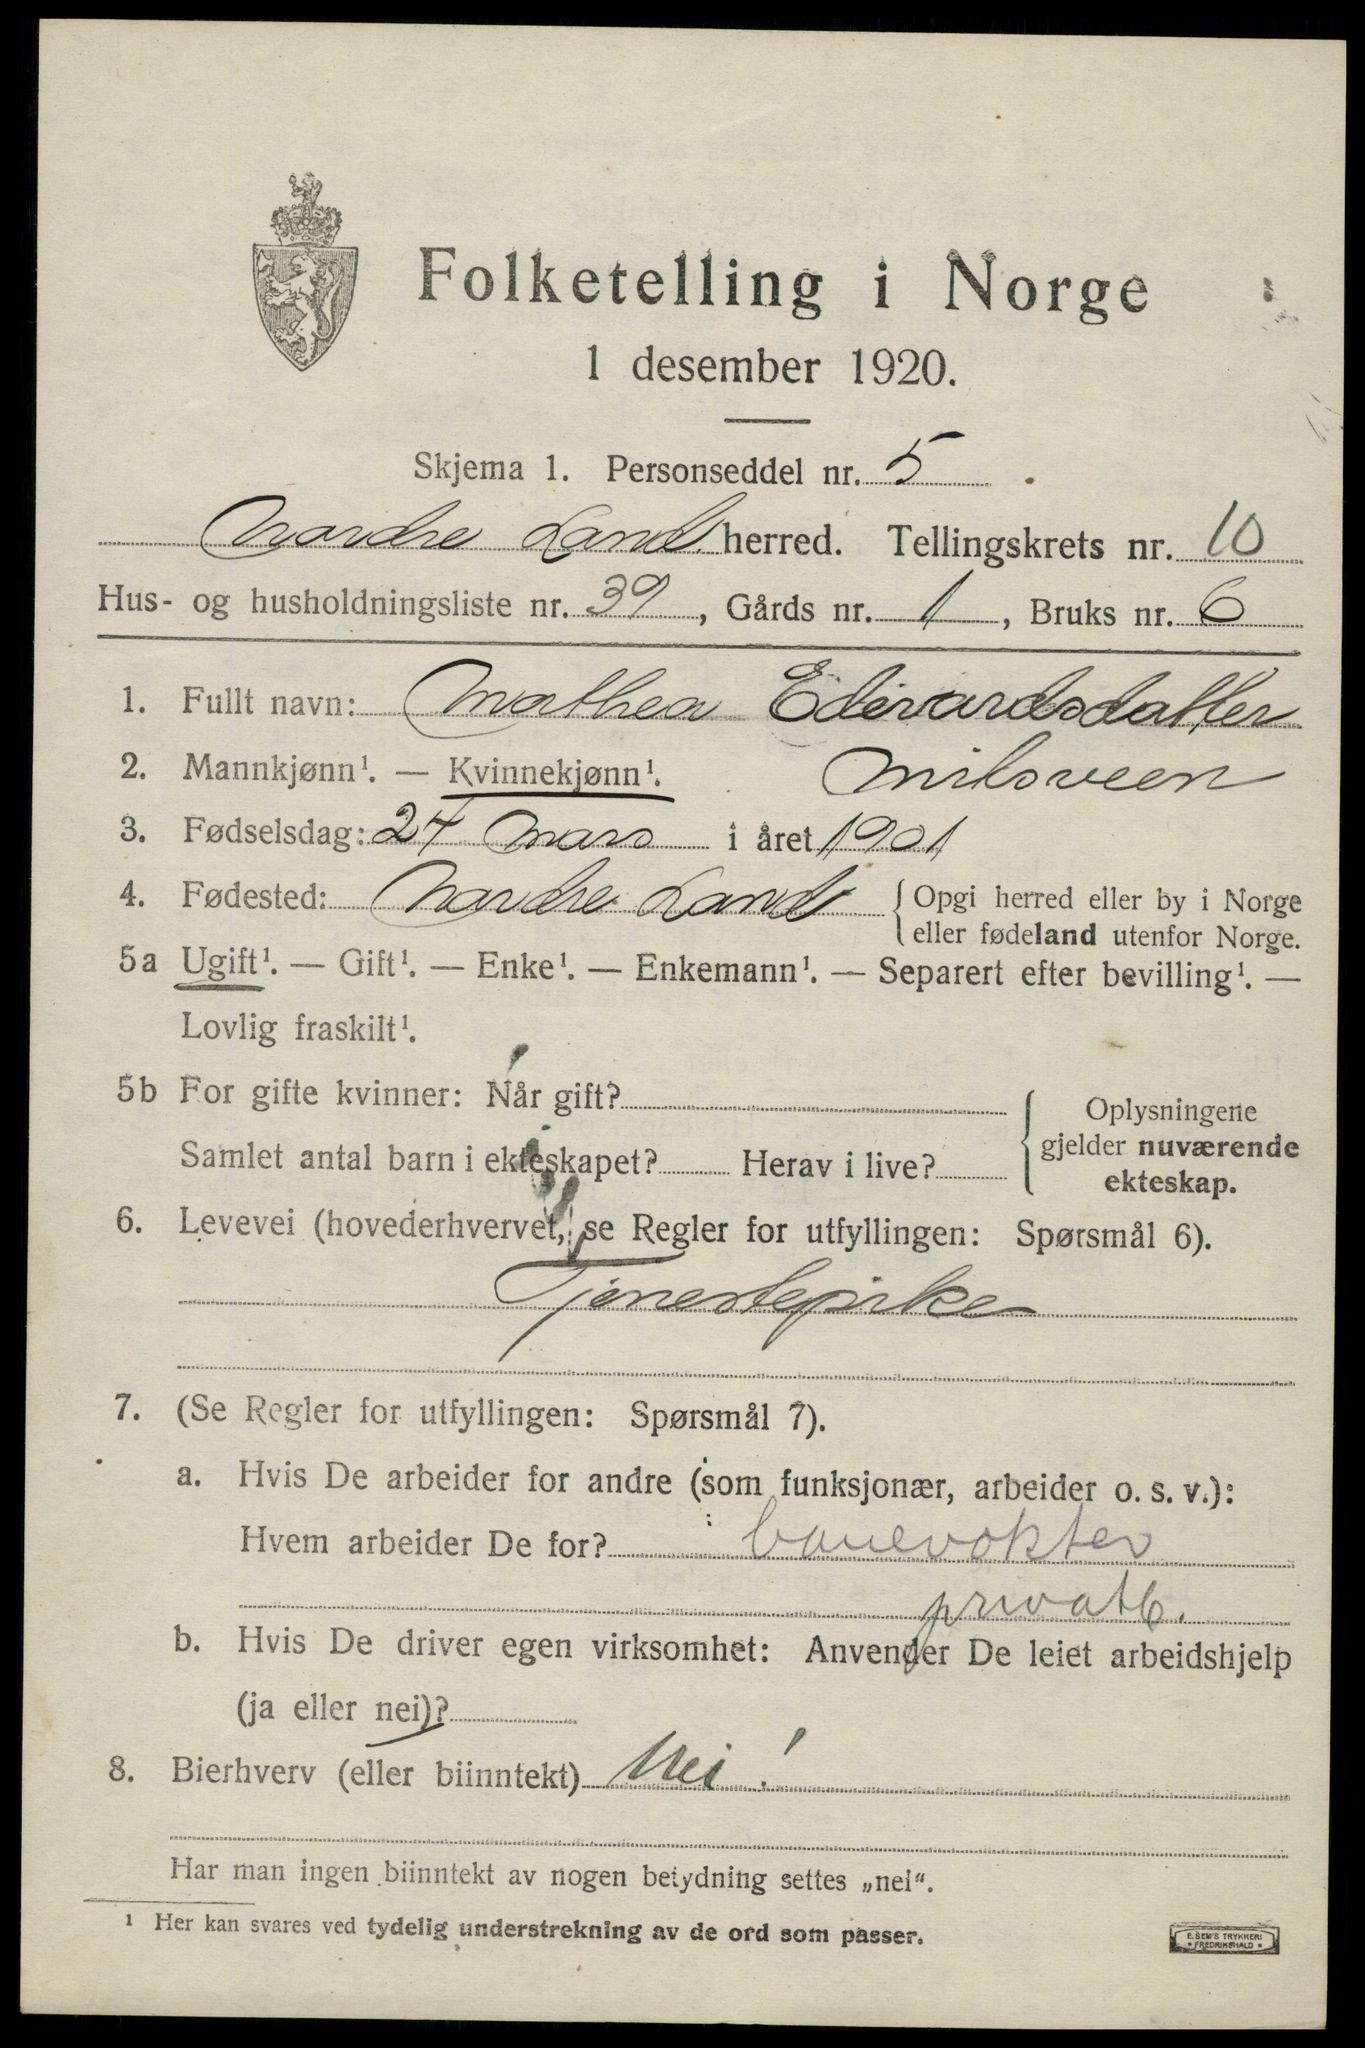 Folketelling i Norge
1 desember 1920.
Skjema 1. Personseddel nr. 5
Nordre Land herred. Tellingskrets nr. 10
Hus- og husholdningsliste nr. 39, Gårds nr. 1, Bruks nr. 6
1. Fullt navn: Mathea Edevardsdatter
2. Mannkjønn¹. — Kvinnekjønn¹. Milsveen
3. Fødselsdag: 24 Mars i året 1901
4. Fødested: Nordre Land { Opgi herred eller by i Norge
eller fødeland utenfor Norge.
5a Ugift¹. — Gift¹. — Enke¹. — Enkemann¹. — Separert efter bevilling¹. —
Lovlig fraskilt¹.
5b For gifte kvinner: Når gift?
Samlet antal barn i ekteskapet? Herav i live?
{ Oplysningene
gjelder nuværende
ekteskap.
6. Levevei (hovederhvervet, se Regler for utfyllingen: Spørsmål 6).
Tjenestepike
7. (Se Regler for utfyllingen: Spørsmål 7).
a. Hvis De arbeider for andre (som funksjonær, arbeider o. s. v.):
Hvem arbeider De for? banevokter
privat
b. Hvis De driver egen virksomhet: Anvender De leiet arbeidshjelp
(ja eller nei)?
8. Bierhverv (eller biinntekt) Nei!
Har man ingen biinntekt av nogen betydning settes „nei“.
¹ Her kan svares ved tydelig understrekning av de ord som passer.
E. SEM'S TRYKKERI
FREDRIKSHALD